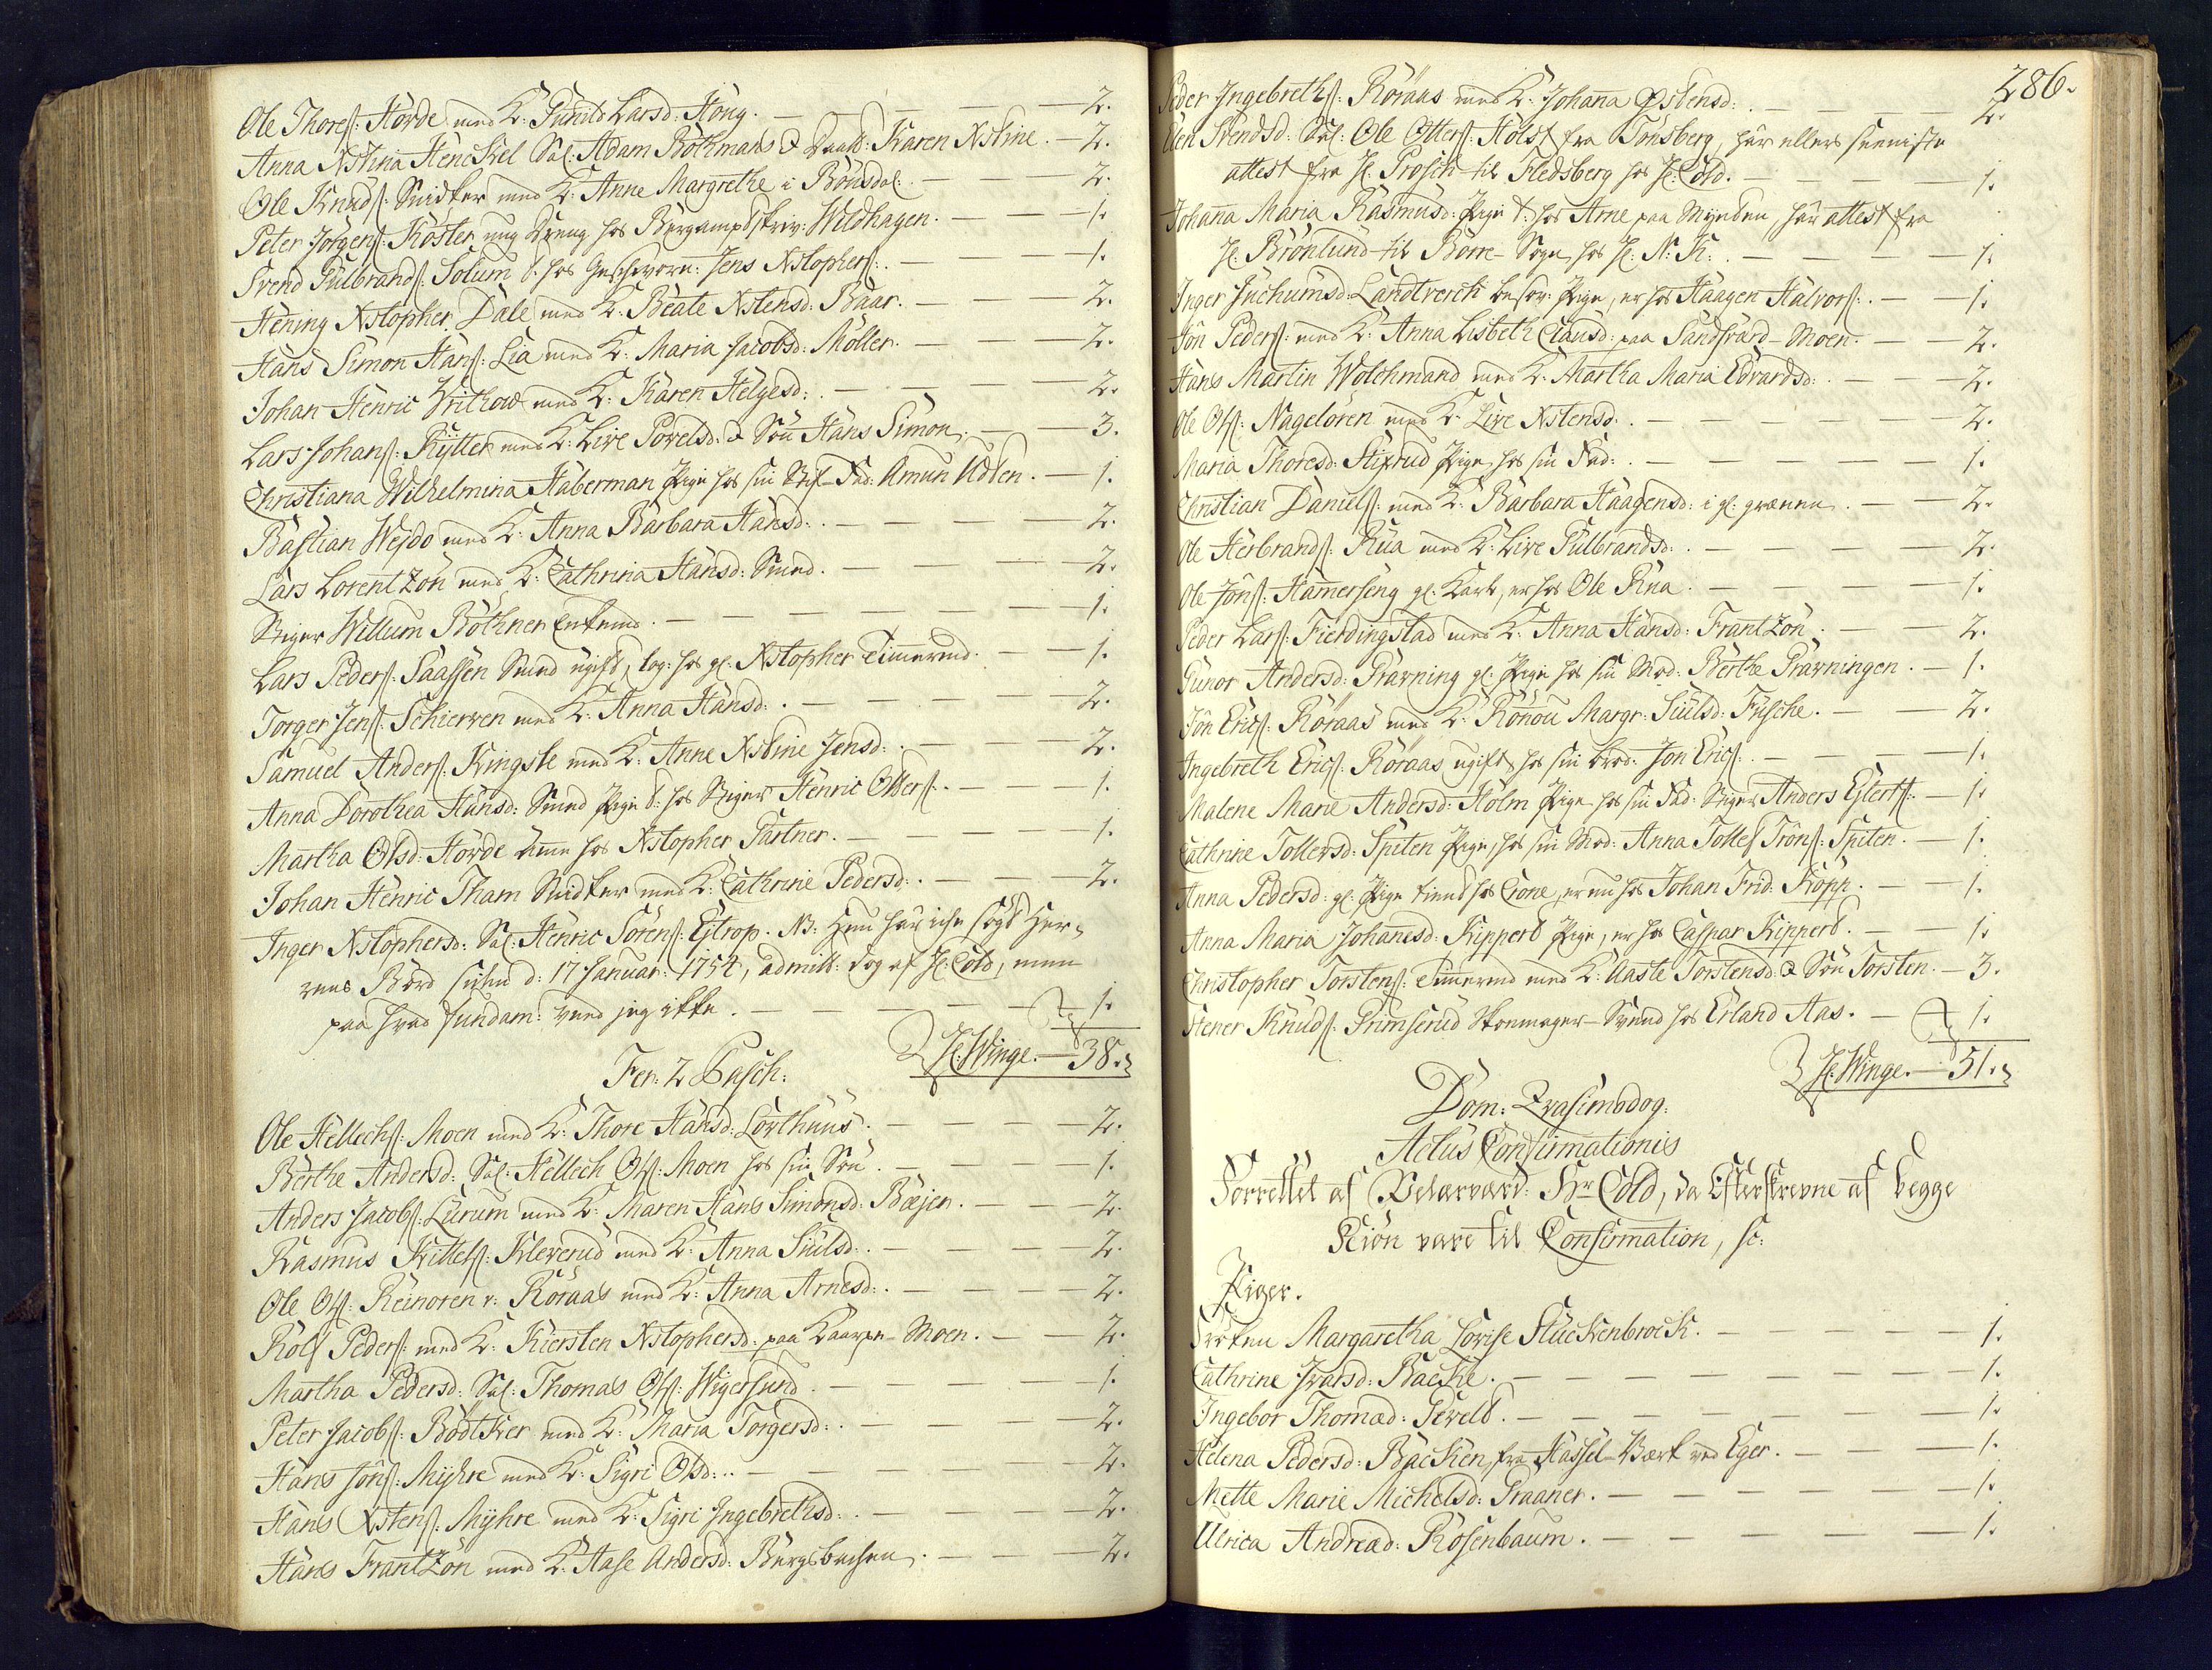 Ole Thoreſ: Hörde med K: Gunild Larsd: Haug. — 2.
Anna Xstina Henckel Sal: Adam Böthmans & Daatt: Karen Xstine. — 2.
Ole Knudſ: Snidker med K: Anne Margrethe i Bönsdal. — 2.
Peter Jörgenſ: Köster ung Dreng hos Bergampdſkriv: Wildhagen. — 1.
Svend Gulbrandſ: Solum t: hos Geschworn: Jens Xstopherſ: — 1.
Hening Xstopher Dale med K: Beate Xstensd: Baar. — 2.
Hans Simon Hanſ: Lia med K: Maria Jacobsd: Möller. — 2.
Johan Henric Writhow med K: Karen Helgesd: — 2.
Lars Johanſ: Rytter med K: Live Povelsd: & Sön Hans Simon. — 3.
Christiana Wilhelmina Haberman Pige hos sin Stif-Fad: Amun Udden. — 1.
Bastian Wejdo med K: Anna Barbara Hansd: — 2.
Lars Lorentzön med K: Cathrina Hansd: Smed. — 2.
Stiger Willum Böthner Enkemd. — 1.
Lars Pederſ: Saaſſen Smed ugift, log: hos gl: Xstopher Timermd. — 1.
Torger Jenſ: Schierven med K: Anna Hansd: — 2.
Samuel Anderſ: Kingsle med K: Anne Xstine Jensd: — 2.
Anna Dorothea Hansd: Smed Pige t: hos Stiger Henric Otterſ: — 1.
Martha Olsd: Hörde Ame hos Xstopher Gartner. — 1.
Johan Henric Tham Snidker med K: Cathrine Pedersd: — 2.
Inger Xstophersd: Sal: Henric Sörenſ: Ejtrop. NB: Hun har icke sögt Her-
rens Bord siden d: 17 Januar: 1754, admitt: dog af H: Cold, men
paa hvad fundam: veed jeg ikke. — 1.
H: Winge. — 38.
Fer: 2 Pasch:
Ole Hellechſ: Moen med K: Thore Hansd: Lorthuus. — 2.
Berthe Andersd: Sal: Hellech Olſ: Moen hos sin Sön. — 1.
Anders Jacobſ: Lurum med K: Maren Hans Simonsd: Bæjer. — 2.
Rasmus Kittelſ: Kleverud med K: Anna Siulsd: — 2.
Ole Olſ: Reinoren v: Röraas med K: Anna Arnesd: — 2.
Rolf Pederſ: med K: Kiersten Xstophersd: paa Kaarpe-Moen. — 2.
Martha Pedersd: Sal: Thomas Olſ: Wigersund. — 1.
Peter Jacobſ: Bödtker med K: Maria Torgersd: — 2.
Hans Jönſ: Myhre med K: Sigri Olsd: — 2.
Hans Xstenſ: Myhre med K: Sigri Ingebrethsd: — 2.
Hans Frantzön med K: Aase Andersd: Bergsbachen. — 2.
286.
Peder Ingebrethſ: Röraas med K: Johana Östensd: — 2.
Elen Svendsd: Sal: Ole Otterſ: Holst fra Tönsberg, har ellers seeniste
attest fra H: Prosch til Fledsberg hos H: Cold. — 1.
Johana Maria Rasmusd: Pige t: hos Arne paa Mynden, har attest fra
H: Brönlund til Borre-Sogn, hos H: N: K: — 1.
Inger Juchumsd: Landtverch besov: Pige, er hos Haagen Halvorſ: — 1.
Jön Pederſ: med K: Anna Lisbeth Clausd: paa Sandsværd-Moen. — 2.
Hans Martin Wolchmand med K: Martha Maria Edvardsd: — 2.
Ole Olſ: Nagelören med K: Live Xstensd: — 2.
Maria Thoresd: Stixrud Pige hos sin Fad: — 1.
Christian Danielſ: med K: Barbara Haagensd: i gl: grænen. — 2.
Ole Herbrandſ: Rua med K: Live Gulbrandsd: — 2.
Ole Jönſ: Hamerseng gl: Karl, er hos Ole Rua. — 1.
Peder Larſ: Fierdingstad med K: Anna Hansd: Frantzön. — 2.
Gunor Andersd: Pravning gl: Pige hos sin Mod: Berthe Pravningen. — 1.
Jön Ericſ: Röraas med K: Rönou Margr: Siulsd: Fusche. — 2.
Ingebreth Ericſ: Röraas ugift, hos sin brod: Jon Ericſ: — 1.
Malene Marie Andersd: Holm Pige hos sin Fad: Stiger Anders Ejlertſ: — 1.
Cathrine Tollersd: Spiten Pige, hos sin Mod: Anna Tolleſ Trönſ: Spiten. — 1.
Anna Pedersd: gl: Pige tient hos Cone, er nu hos Johan Frid: Kopp. — 1.
Anna Maria Johanesd: Kippert Pige, er hos Caspar Kippert. — 1.
Christopher Torstenſ: Timermd med K: Aaste Torstensd: & Sön Torsten. — 3.
Stener Knudſ: Grimserud Skomager-Svend hos Erland Aas. — 1.
H: Winge. — 51.
Dom: Qvasimodog.
Actus Confirmationis
Forrettet af Velærværd: Hr Cold, da Efterskrevne af begge
Kiön vare til Confirmation, sc:
Piger.
Fröken Margaretha Lovise Stuckenbrock. — 1.
Cathrine Ivarsd: Backe. — 1.
Ingebor Thomæd: Gevelt. — 1.
Helena Pedersd: Backen, fra Hassel-Værk ved Eger. — 1.
Mette Marie Michelsd: Graaner. — 1.
Ulrica Andread: Rosenbaum. — 1.